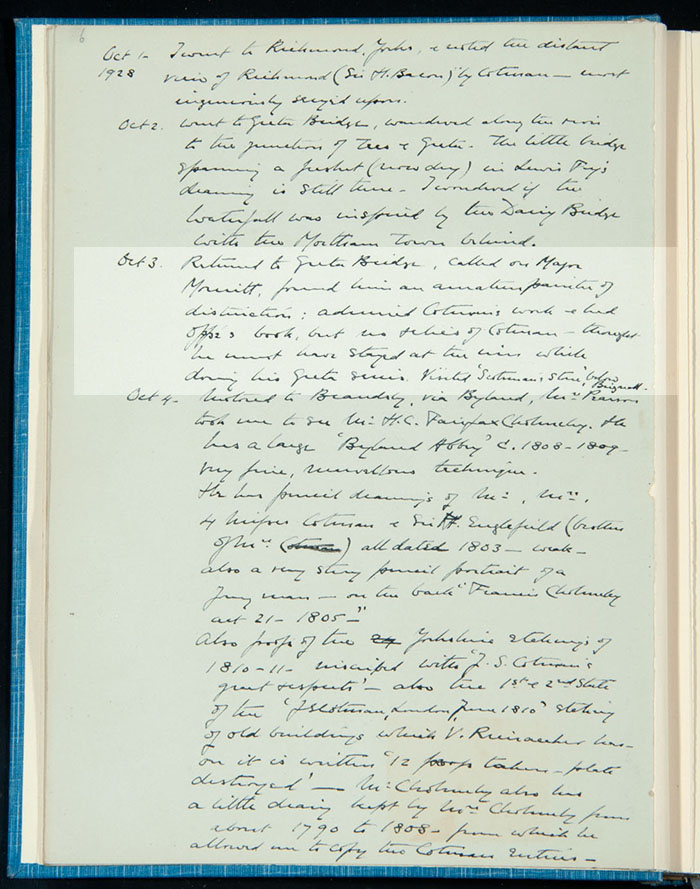 6
Oct 1- I went to Richmond, Yorks, & noted the distant
1928 view of Richmond (Sir H. Bacon) by Cotman — most
ingeniously seized upon.
Oct 2. Went to Greta Bridge, wandered along the river
to the junction of Tees & Greta. The little bridge
spanning a freshet (now dry) in Lewis Fry's
drawing is still there. I wondered if the
Waterfall was inspired by the Dairy Bridge
with the Mortham Tower behind.
Oct 3. Returned to Greta Bridge, called on Major
Morritt, found him an amateur painter of
distinction; admired Cotman's work & had
Oppé's book, but no relics of Cotman — thought
he must have stayed at the inn while
doing his Greta series. Visited "Scotsman's Stone," below
Brignall.
Oct 4- Motored to Brandsby, via Byland, Mrs Pearson
took me to see Mr H.C. Fairfax Cholmeley. He
has a large "Byland Abbey" c. 1808-1809-
very fine, marvellous technique.
He has pencil drawings of Mr, Mrs,
4 Misses & Sir H. Englefield (brother
of Mrs ) all dated 1803 — weak —
also a very strong pencil portrait of a
young man — on the back "Francis Cholmeley
Oct 21 - 1805 —"
Also proofs of the Yorkshire etchings of
1810-11- inscribed with "J. S. Cotman's
great respects' — also the 1st & 2nd State
of the "J S Cotman, London, June 1810" etching
of old buildings which V. Rienaecker has —
on it is written "12 proofs taken — plate
destroyed' — Mr Cholmeley also has
a little diary kept by Mrs Cholmeley from
about 1790 to 1808 — from which he
allowed me to copy the Cotman Entries —